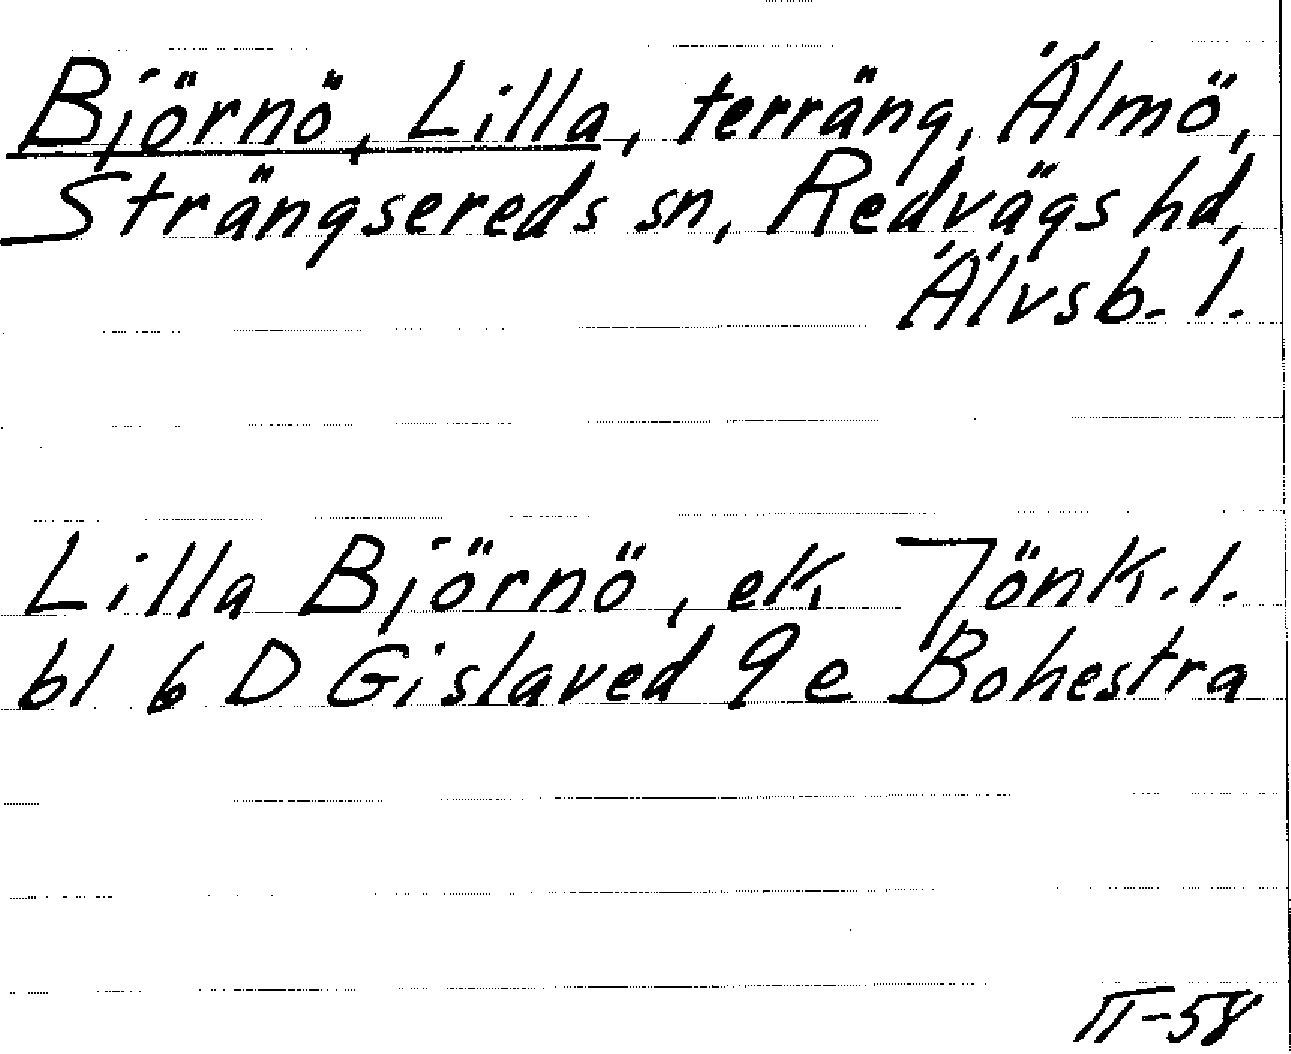 Björnö, Lilla, terräng, Älmö,
Strängsereds sn, Redvägs hd,
Älvsb. l.
Lilla Björnö, ek Jönk. l.
bl 6 D Gislaved 9 e Bohestra
II-58